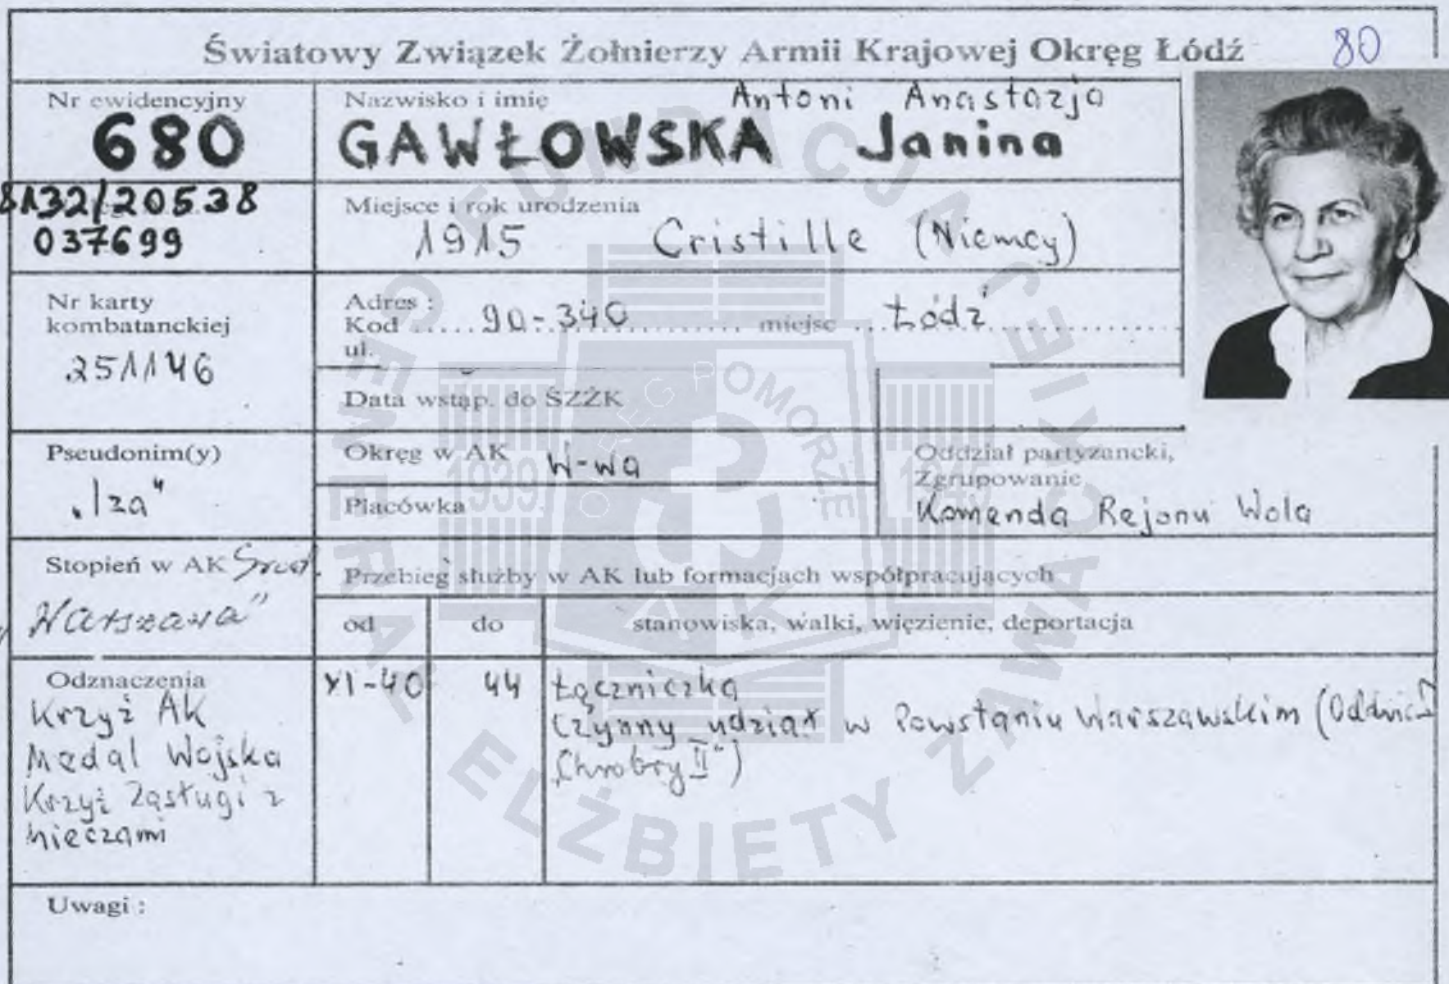 Światowy Związek Żołnierzy Armii Krajowej Okręg Łódź 80
Nr ewidencyjny
680
8132/20538
037699
Nazwisko i imię Antoni Anastazja
GAWŁOWSKA Janina
Miejsce i rok urodzenia
1915 Cristille (Niemcy)
Nr karty
kombatanckiej
251146
Adres :
Kod ..... 90-340 ............ miejsc ... Łódź ............
ul.
Data wstąp. do ŚZŻK
Pseudonim(y)
"Iza"
Okręg w AK W-wa
Placówka
Oddział partyzancki,
Zgrupowanie
Komenda Rejonu Wola
Stopień w AK
Warszawa"
Przebieg służby w AK lub formacjach współpracujących
od do stanowiska, walki, więzienie, deportacja
Odznaczenia
Krzyż AK
Medal Wojska
Krzyż Zasługi z
mieczami
XI-40 44 Łączniczka
Czynny udział w Powstaniu Warszawskim (Oddział
"Chrobry II")
Uwagi :
FUNDACJA GENERAŁ ELŻBIETY ZAWACKIEJ
OKRĘG POMORZE
1939 1945
AK